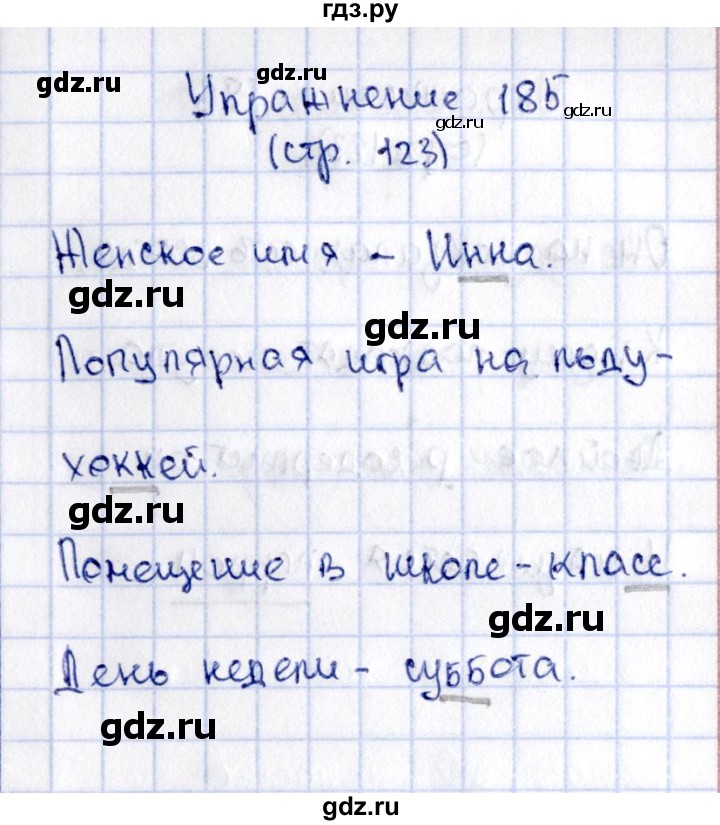 гдз.ру
gdz.ru
gdz.ru
Упражнение 185
gdz.ru
gdz.ru
(стр. 123)
Женское имя - Инна.
gdz.ru
gdz.ru
Популярная игра на льду -
хоккей.
gdz.ru
Помещение в школе - класс.
gdz.ru
День недели - суббота.
gdz.ru
gdz.ru